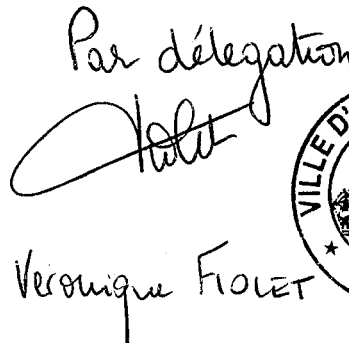 Par délegation
Fiolet
VILLE D'
Veronique FIOLET